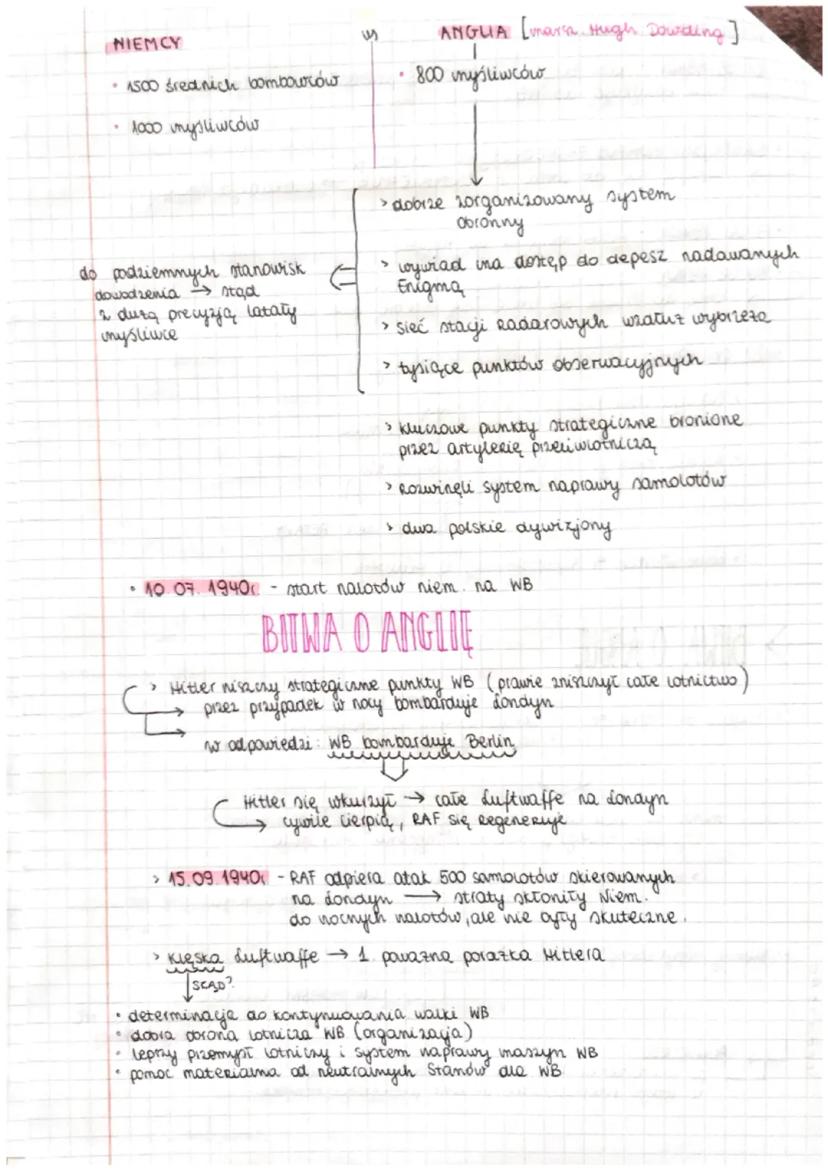 NIEMCY
vs
ANGLIA [marsz. Hugh Dowding]
• 1500 średnich bombowców
• 1000 myśliwców
• 800 myśliwców
> dobrze zorganizowany system
obronny
> wywiad ma dostęp do depesz nadawanych
Enigmą
> sieć stacji radarowych wzdłuż wybrzeża
> tysiące punktów obserwacyjnych
do podziemnych stanowisk
dowodzenia → stąd
z dużą precyzją latały
myśliwce
> kluczowe punkty strategiczne bronione
przez artylerię przeciwlotniczą
> rozwinęli system naprawy samolotów
> dwa polskie dywizjony
• 10.07.1940r. - start nalotów niem. na WB
BITWA O ANGLIĘ
> Hitler niszczy strategiczne punkty WB (prawie zniszczył całe lotnictwo)
→ przez przypadek w nocy bombarduje Londyn
→ w odpowiedzi: WB bombarduje Berlin
Hitler się wkurzył → całe Luftwaffe na Londyn
→ cywile cierpią, RAF się regeneruje
> 15.09.1940r. - RAF odpiera atak 500 samolotów skierowanych
na Londyn → straty skłoniły Niem.
do nocnych nalotów, ale nie były skuteczne.
> klęska Luftwaffe → 1. poważna porażka Hitlera
SKĄD?
• determinacja do kontynuowania walki WB
• dobra obrona lotnicza WB (organizacja)
• lepszy przemysł lotniczy i system naprawy maszyn WB
• pomoc materialna od neutralnych Stanów dla WB